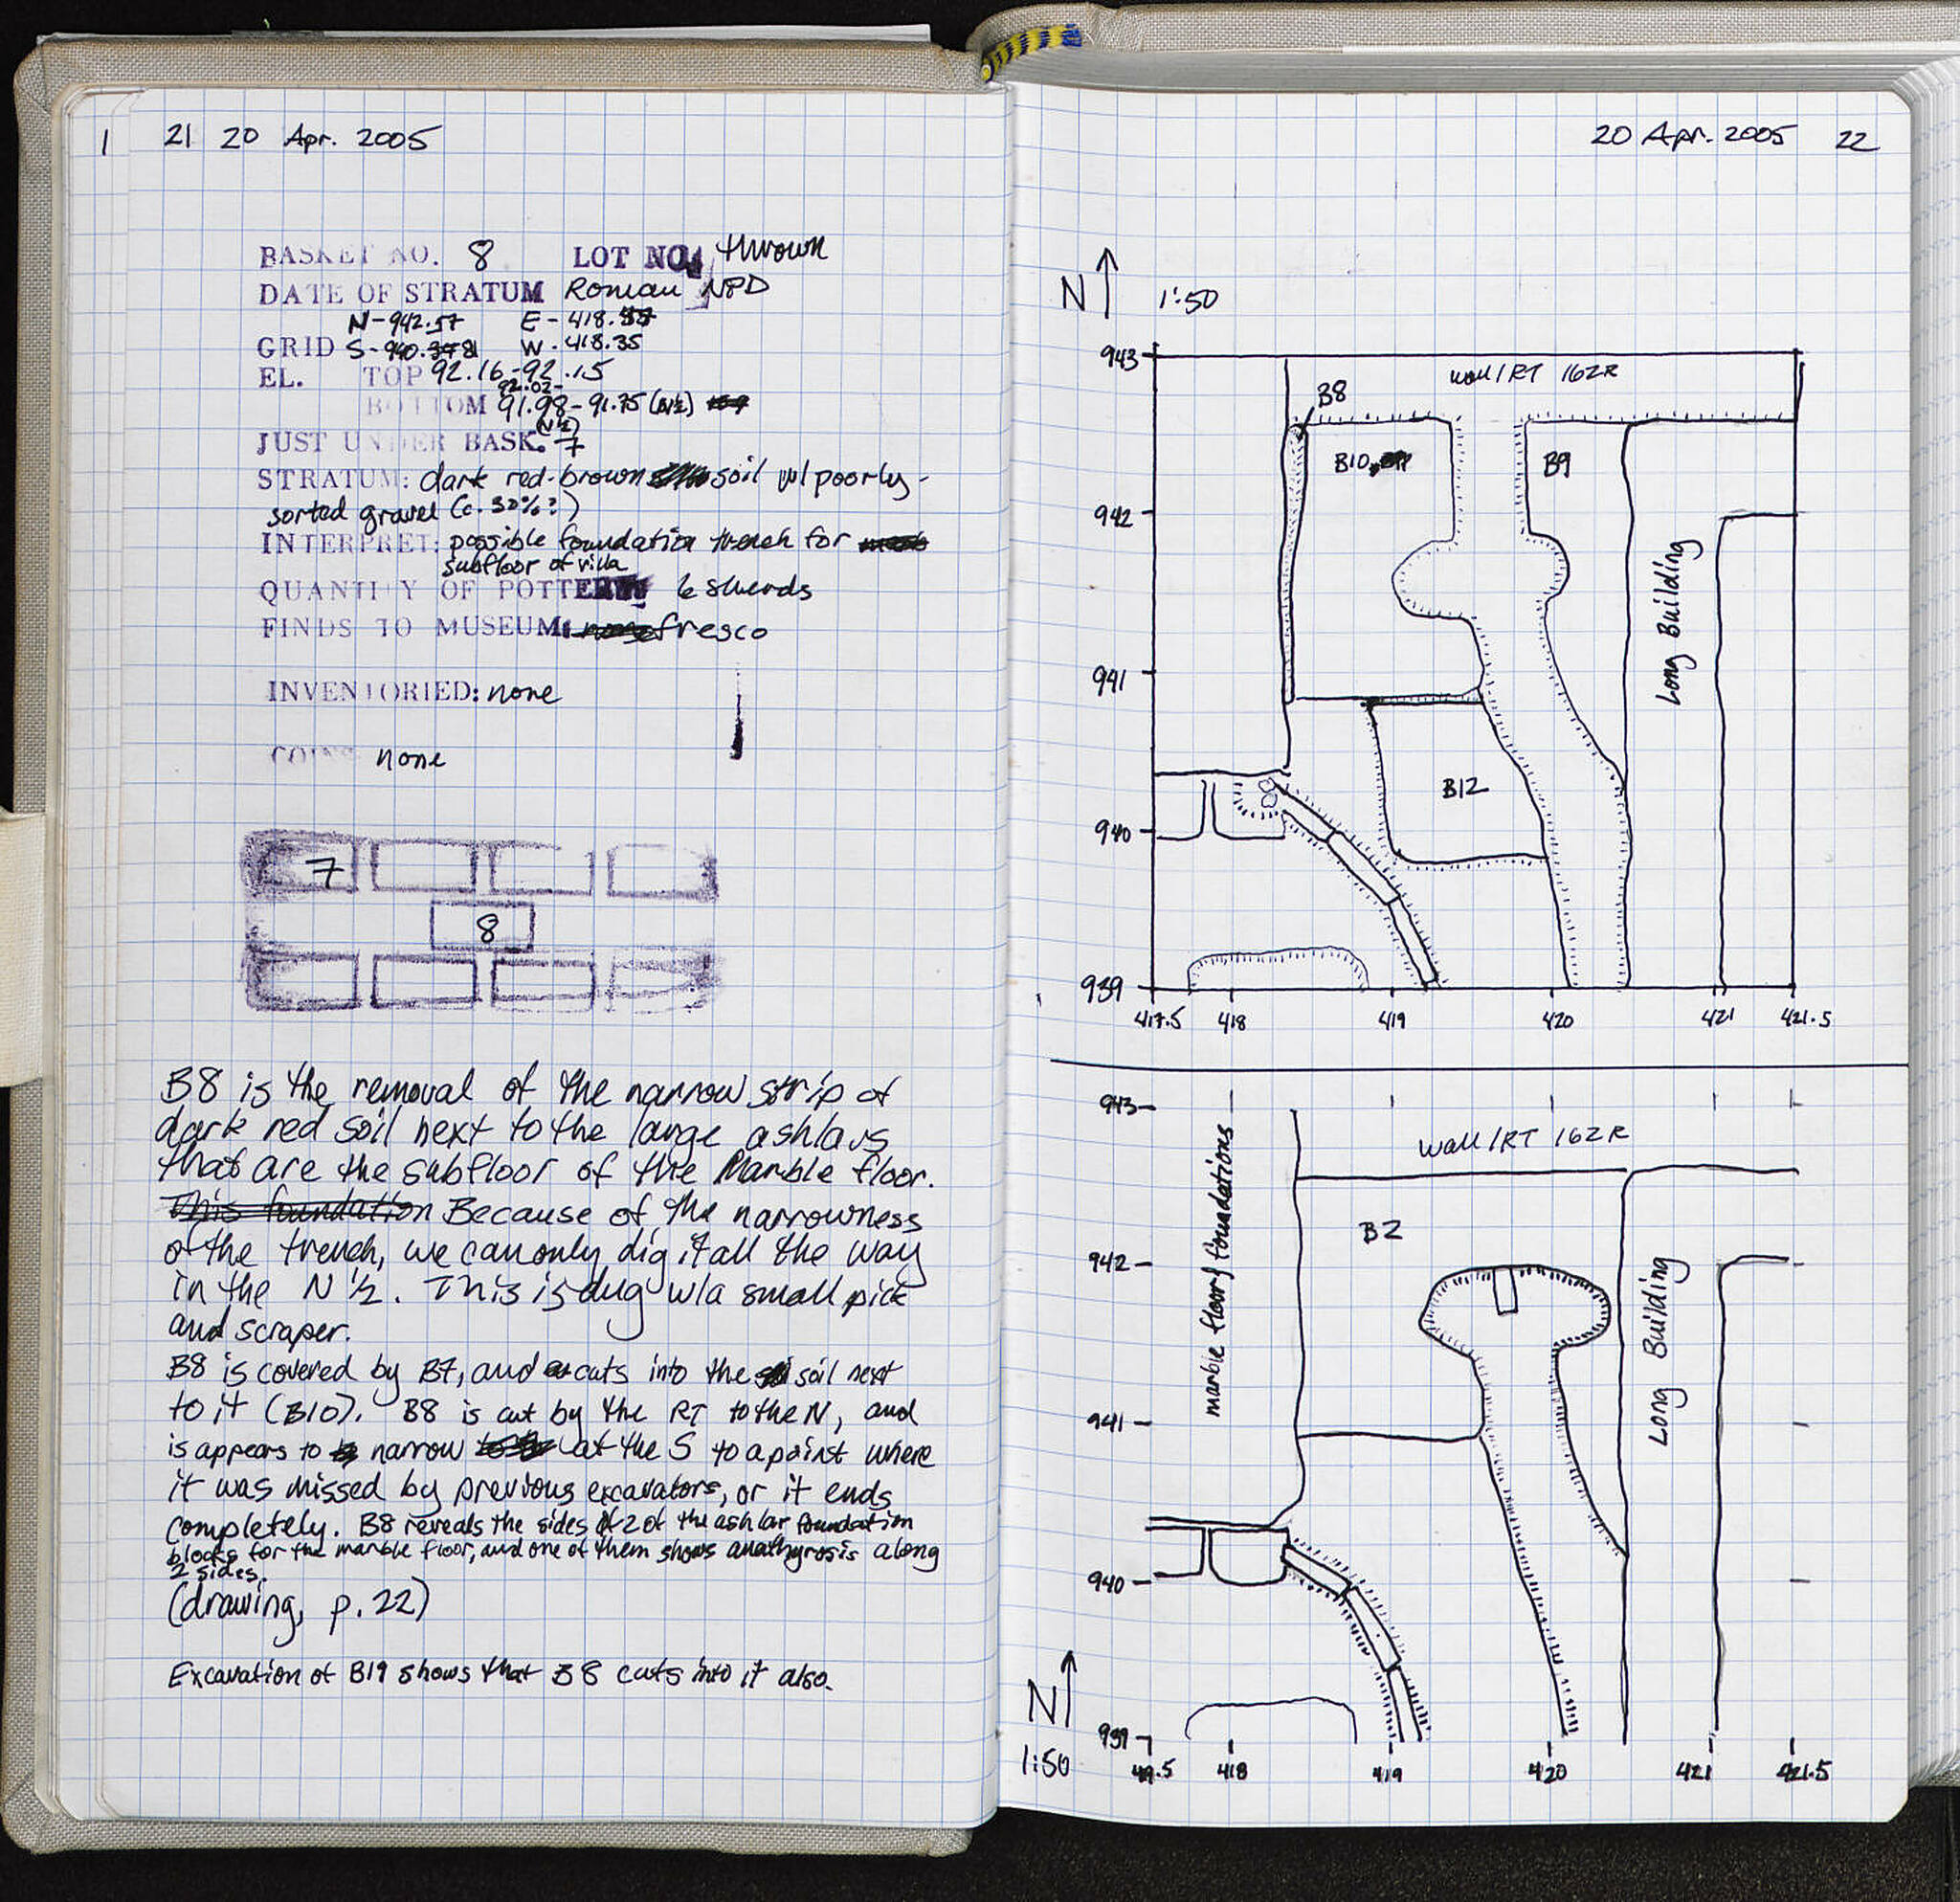 1 21 20 Apr. 2005
BASKET NO. 8 LOT NO. thrown
DATE OF STRATUM Roman NPD
N-942.57 E-418.
GRID S-940.81 W-418.35
EL. TOP 92.16-92.15
92.02-
BOTTOM 91.98-91.75 (N½)
(N½)
JUST UNDER BASK. 7
STRATUM: dark red-brown soil w/ poorly-
sorted gravel (c. 30%?)
INTERPRET: possible foundation trench for
subfloor of villa
QUANTITY OF POTTERY 6 sherds
FINDS TO MUSEUM: fresco
INVENTORIED: none
COINS none
7
8
B8 is the removal of the narrow strip of
dark red soil next to the large ashlars
that are the subfloor of the Marble floor.
This foundation Because of the narrowness
of the trench, we can only dig it all the way
in the N ½. This is dug w/a small pick
and scraper.
B8 is covered by B7, and cuts into the soil next
to it (B10). B8 is cut by the RT to the N, and
is appears to narrow at the S to a point where
it was missed by previous excavators, or it ends
completely. B8 reveals the sides of 2 of the ashlar foundation
blocks for the marble floor, and one of them shows anathyrosis along
2 sides.
(drawing, p. 22)
Excavation of B19 shows that B8 cuts into it also.
20 Apr. 2005 22
N 1:50
943
wall/RT 162R
B8
B10
B9
942
Long Building
941
B12
940
939
417.5 418 419 420 421 421.5
943
wall/RT 162R
marble floor/foundations
B2
942
Long Building
941
940
N
939
1:50
.5 418 419 420 421 421.5